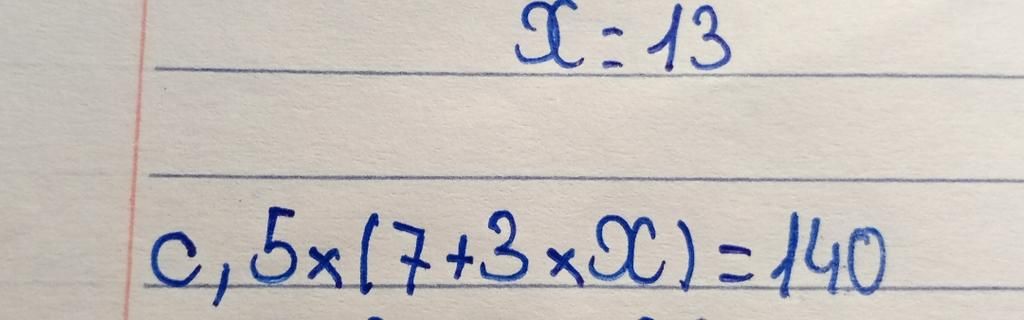 x = 13
c, 5 × (7 + 3 × x) = 140